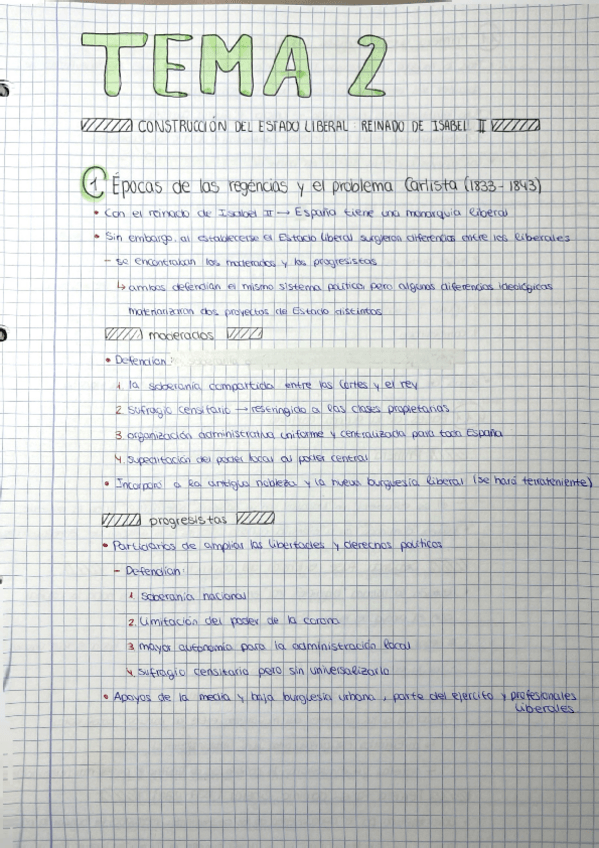 TEMA 2
CONSTRUCCIÓN DEL ESTADO LIBERAL: REINADO DE ISABEL II
1 Épocas de las regencias y el problema Carlista (1833-1843)
• Con el reinado de Isabel II → España tiene una monarquía liberal
• Sin embargo, al establecerse el Estado liberal surgieron diferencias entre los liberales
- se encontraban los moderados y los progresistas
↳ ambos defendían el mismo sistema político pero algunas diferencias ideológicas
materializaron dos proyectos de Estado distintos
moderados
• Defendían:
1. la soberanía compartida entre las Cortes y el rey
2. sufragio censitario → restringido a las clases propietarias
3. organización administrativa uniforme y centralizada para toda España
4. supeditación del poder local al poder central
• Incorporó a la antigua nobleza y la nueva burguesía liberal (se hará terrateniente)
progresistas
• Partidarios de ampliar las libertades y derechos políticos
- Defendían:
1. soberanía nacional
2. limitación del poder de la corona
3. mayor autonomía para la administración local
4. sufragio censitario pero sin universalizarlo
• Apoyos de la media y baja burguesía urbana, parte del ejercito y profesionales
liberales